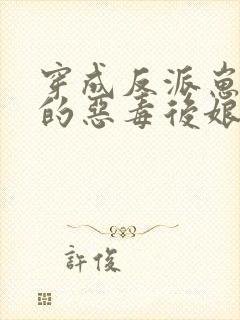 穿成反派崽
的惡毒後娘
許俊